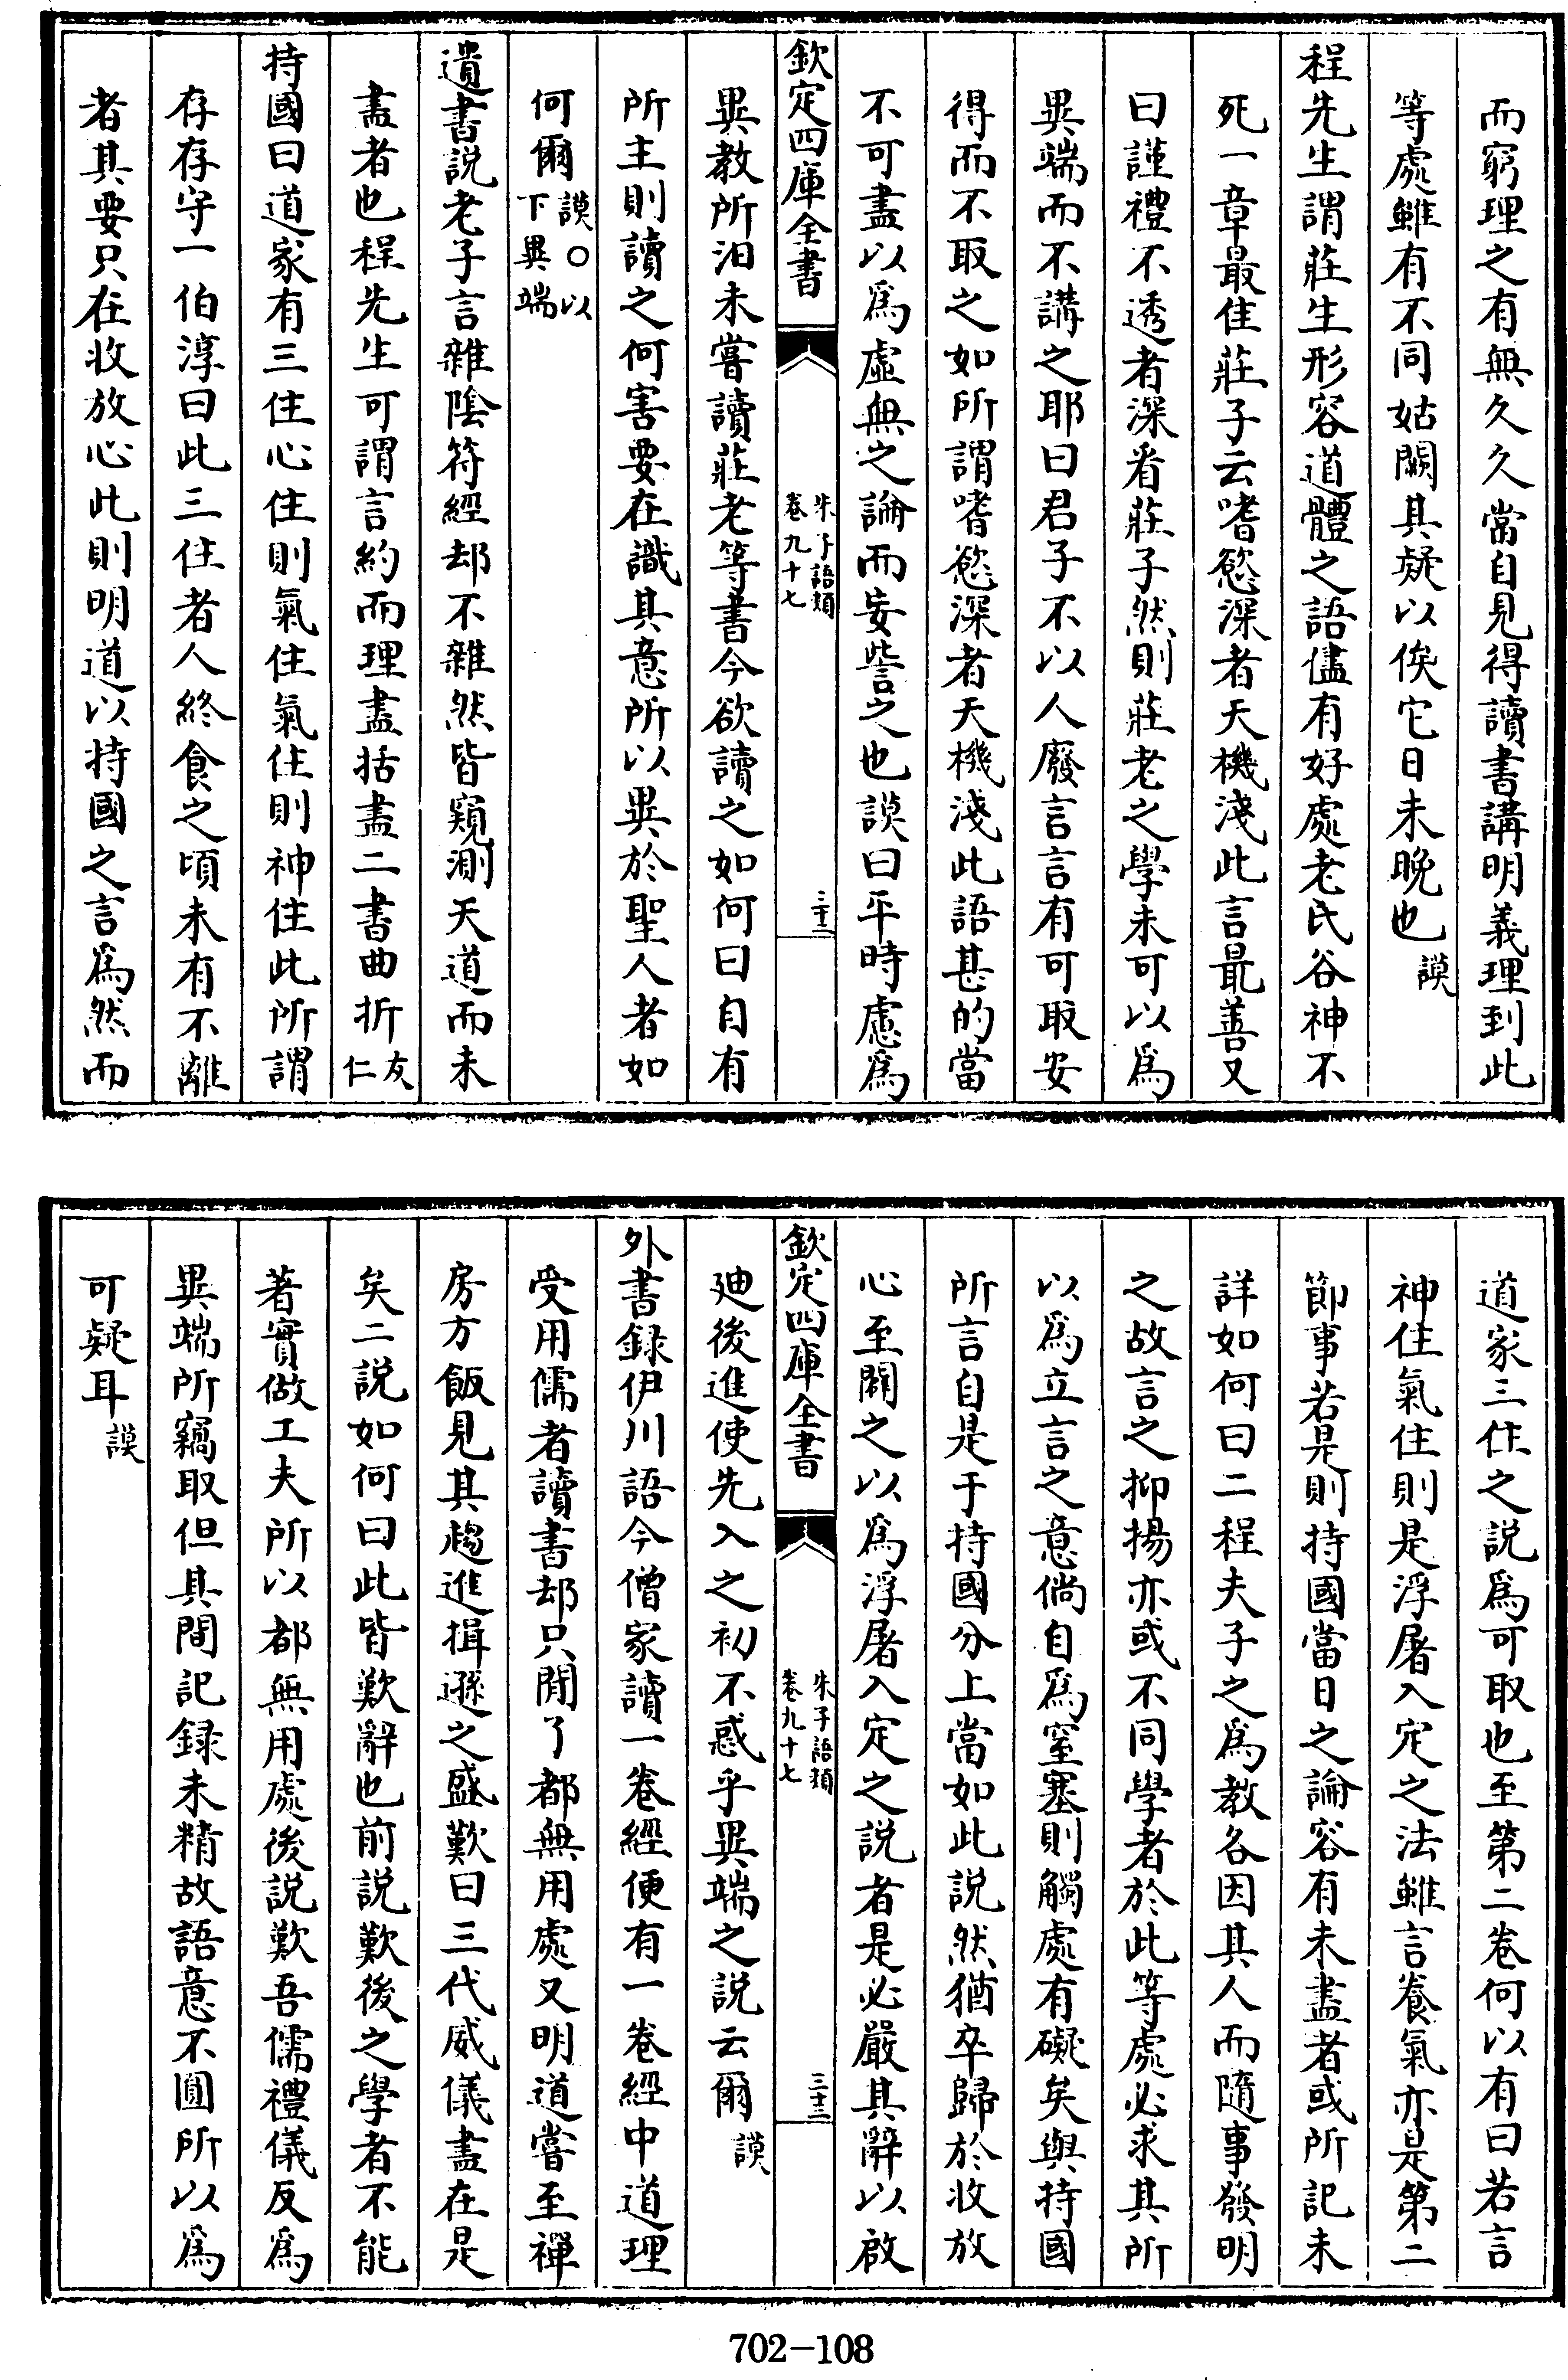 而窮理之有無久久當自見得讀書講明義理到此
等處雖有不同姑闕其疑以俟它日未晚也謨
程先生謂莊生形容道體之語儘有好處老氏谷神不
死一章最佳莊子云嗜慾深者天機淺此言最善又
曰謹禮不透者深看莊子然則莊老之學未可以為
異端而不講之耶曰君子不以人廢言言有可取安
得而不取之如所謂嗜慾深者天機淺此語甚的當
不可盡以為虛無之論而妄訾之也謨曰平時慮為
欽定四庫全書
朱子語類
卷九十七
三十二
異教所汨未嘗讀莊老等書今欲讀之如何曰自有
所主則讀之何害要在識其意所以異於聖人者如
何爾謨○以下異端
遺書説老子言雜陰符經却不雜然皆窺測天道而未
盡者也程先生可謂言約而理盡括盡二書曲折友仁
持國曰道家有三住心住則氣住氣住則神住此所謂
存存守一伯淳曰此三住者人終食之頃未有不離
者其要只在收放心此則明道以持國之言為然而
道家三住之説為可取也至第二卷何以有曰若言
神住氣住則是浮屠入定之法雖言養氣亦是第二
節事若是則持國當日之論容有未盡者或所記未
詳如何曰二程夫子之為教各因其人而隨事發明
之故言之抑揚亦或不同學者於此等處必求其所
以為立言之意倘自為窒塞則觸處有礙矣與持國
所言自是于持國分上當如此説然猶卒歸於收放
心至闢之以為浮屠入定之説者是必嚴其辭以啟
欽定四庫全書
朱子語類
卷九十七
三十三
廸後進使先入之初不惑乎異端之説云爾謨
外書録伊川語今僧家讀一卷經便有一卷經中道理
受用儒者讀書却只閒了都無用處又明道嘗至禪
房方飯見其趨進揖遜之盛歎曰三代威儀盡在是
矣二説如何曰此皆歎辭也前説歎後之學者不能
著實做工夫所以都無用處後説歎吾儒禮儀反為
異端所竊取但其間記録未精故語意不圓所以為
可疑耳謨
702-108